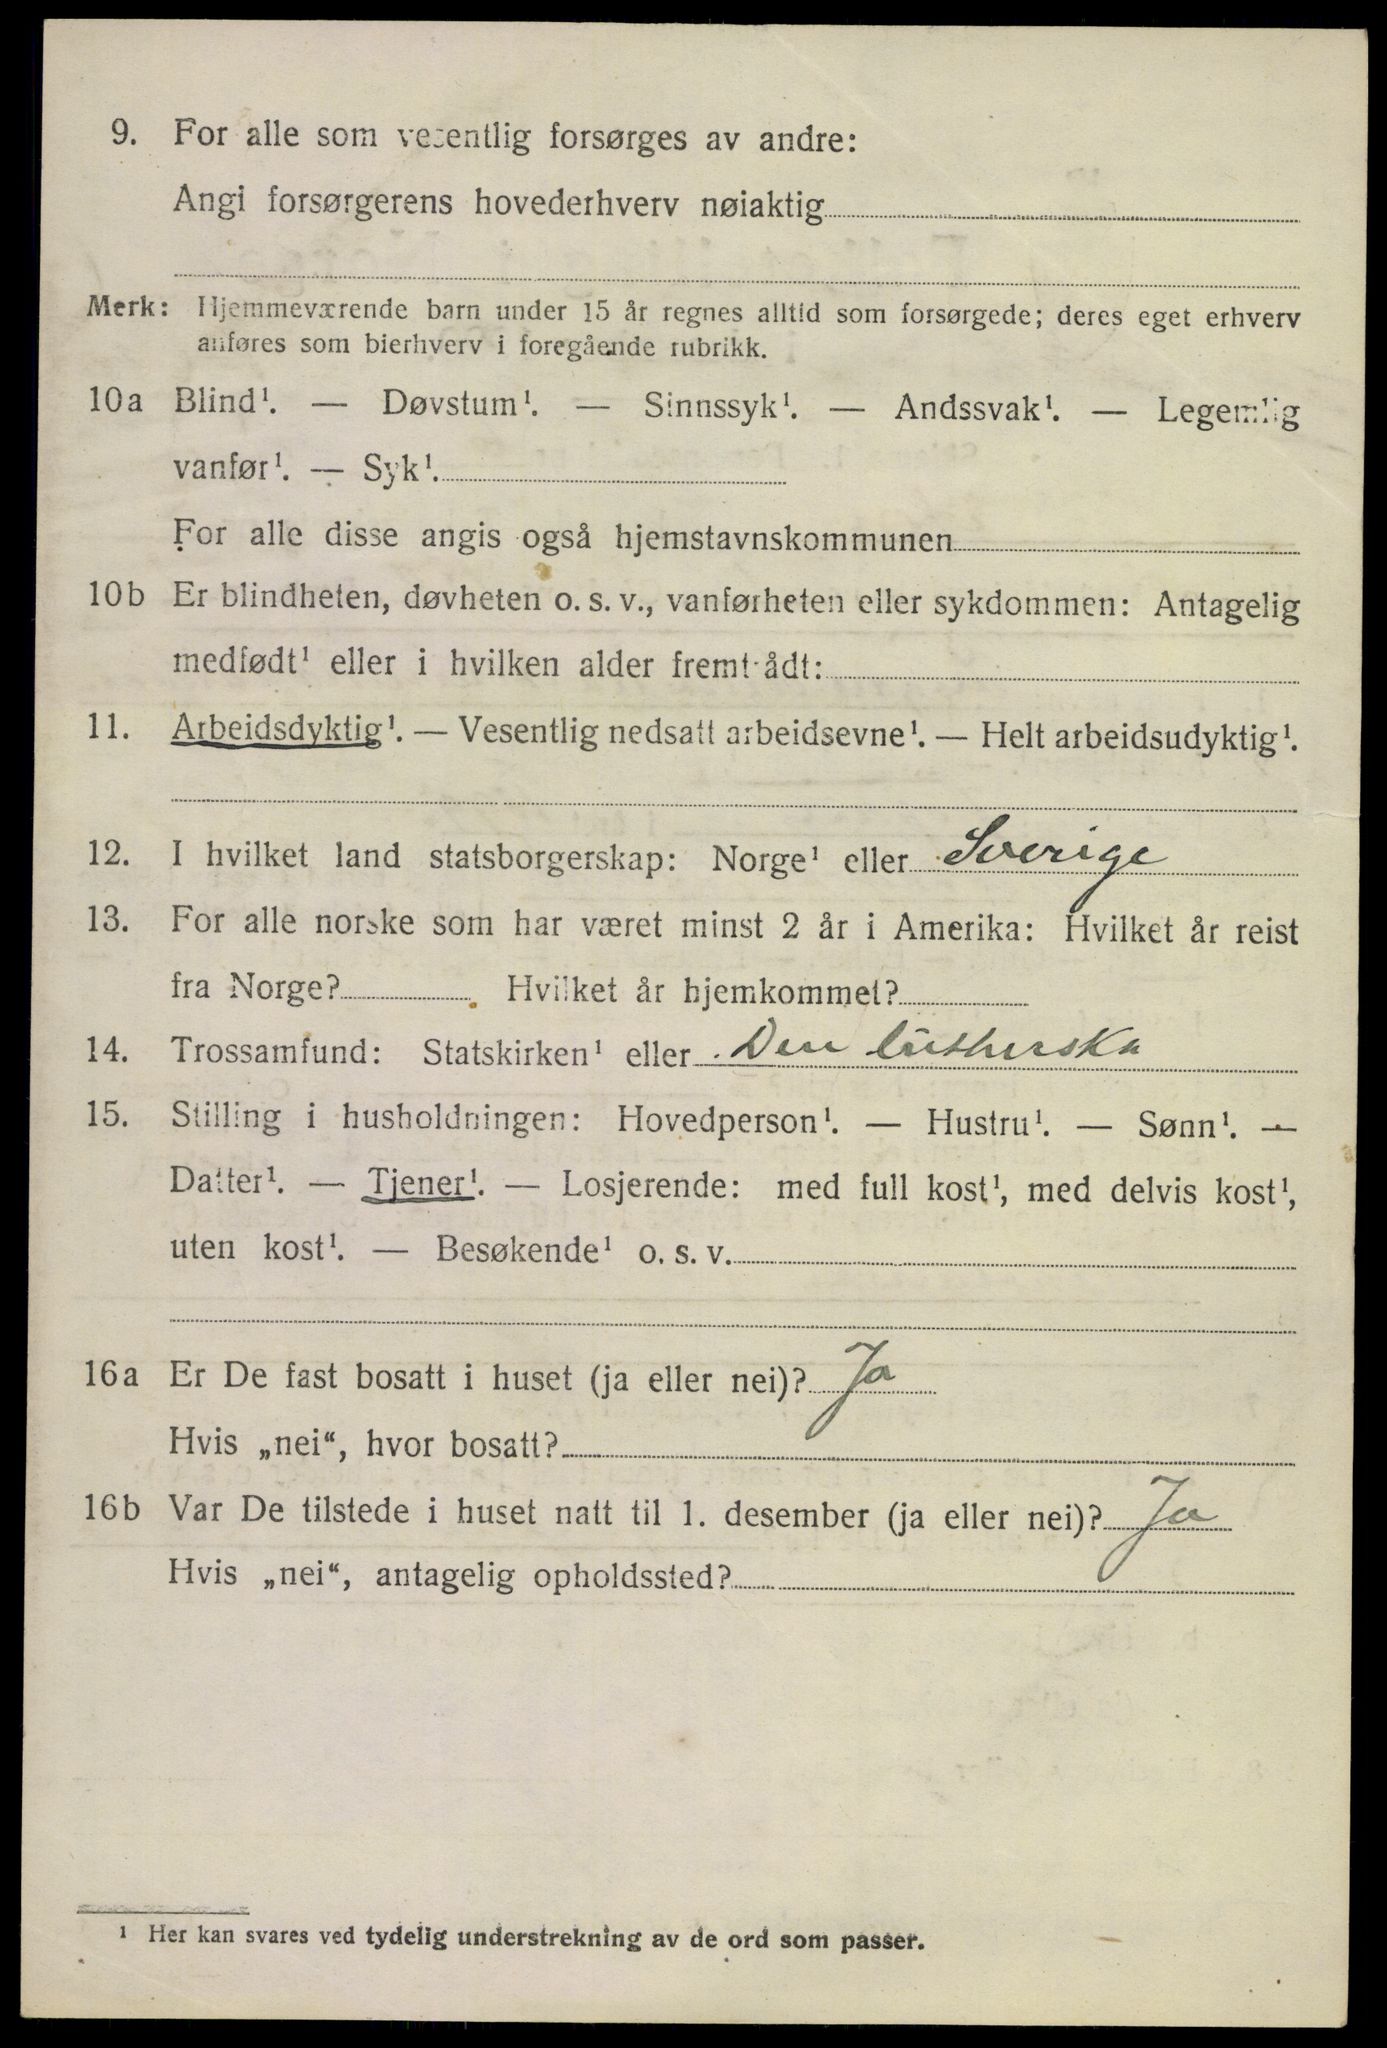 9. For alle som vesentlig forsørges av andre:
Angi forsørgerens hovederhverv nøiaktig
Merk: Hjemmeværende barn under 15 år regnes alltid som forsørgede; deres eget erhverv
anføres som bierhverv i foregående rubrikk.
10a Blind¹. — Døvstum¹. — Sinnssyk¹. — Andssvak¹. — Legemlig
vanfør¹. — Syk¹.
For alle disse angis også hjemstavnskommunen
10b Er blindheten, døvheten o. s. v., vanførheten eller sykdommen: Antagelig
medfødt¹ eller i hvilken alder fremtrådt:
11. Arbeidsdyktig¹. — Vesentlig nedsatt arbeidsevne¹. — Helt arbeidsudyktig¹.
12. I hvilket land statsborgerskap: Norge¹ eller Sverige
13. For alle norske som har været minst 2 år i Amerika: Hvilket år reist
fra Norge? Hvilket år hjemkommet?
14. Trossamfund: Statskirken¹ eller Den lutherska
15. Stilling i husholdningen: Hovedperson¹. — Hustru¹. — Sønn¹. —
Datter¹. — Tjener¹. — Losjerende: med full kost¹, med delvis kost¹,
uten kost¹. — Besøkende¹ o. s. v.
16a Er De fast bosatt i huset (ja eller nei)? Ja
Hvis „nei“, hvor bosatt?
16b Var De tilstede i huset natt til 1. desember (ja eller nei)? Ja
Hvis „nei“, antagelig opholdssted?
¹ Her kan svares ved tydelig understrekning av de ord som passer.